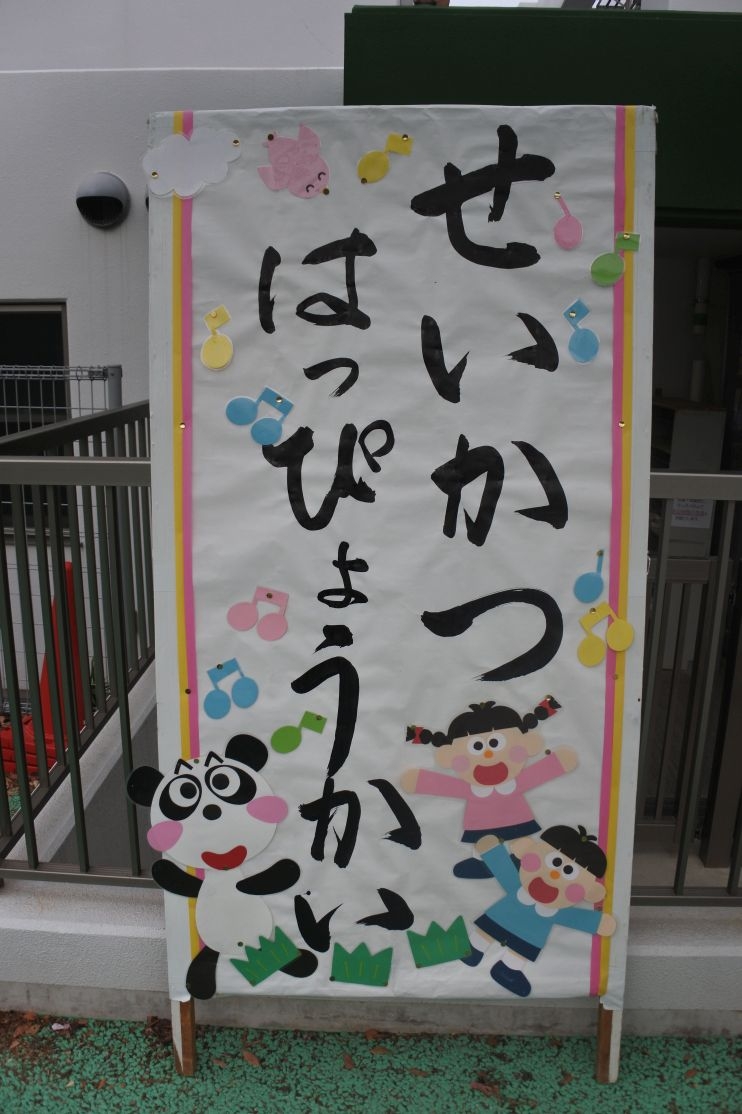 せいかつ
はっぴょうかい